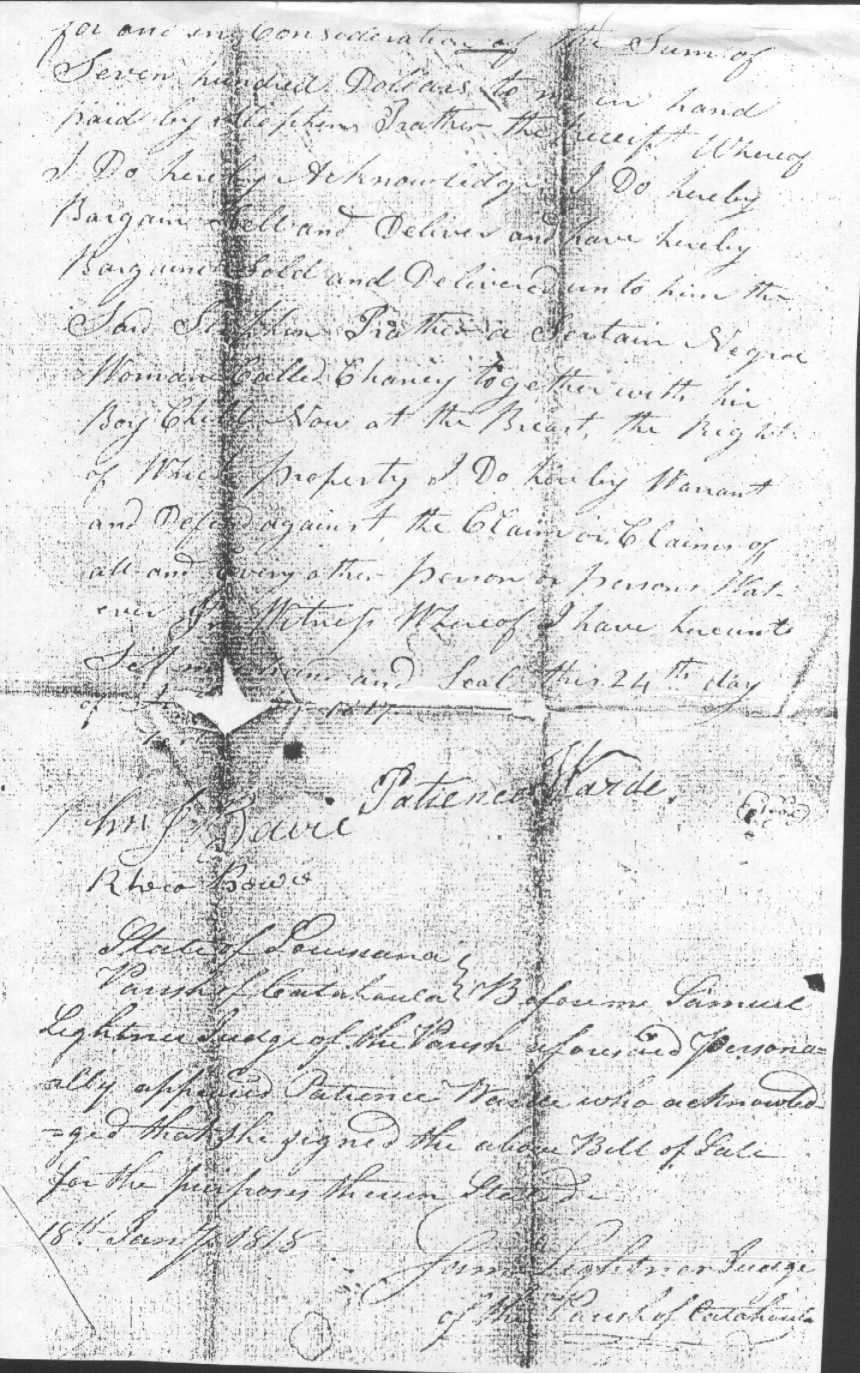 for and in Consideration of the Sum of
Seven hundred Dollars to me in hand
paid by Stephen Prather the receipt Whereof
I Do hereby Acknowledge I Do hereby
Bargain Sell and Deliver and have hereby
Bargained Sold and Delivered unto him the
Said Stephen Prather a Sertain Negroe
Woman Called Chaney together with hir
Boy Child Now at the Breast, the Right
of Which property I Do hereby Warrant
and Defend against the Claim or Claims of
all and Every other person or persons What-
ever In Witness Whereof I have hereunto
Set my hand and Seal this 24th day
of 1817
Patience Warde
John J Davis
Rheca Bowie
State of Louisiana
Parish of Catahoula Before me Samuel
Lightner Judge of the Parish aforesaid Persona=
ally appeared Patience Warde who acknowled-
=ged that she signed the above Bill of Sale
for the purposes therein Stated
18th Jany 1818
Saml Lightner Judge
of the Parish of Catahoula